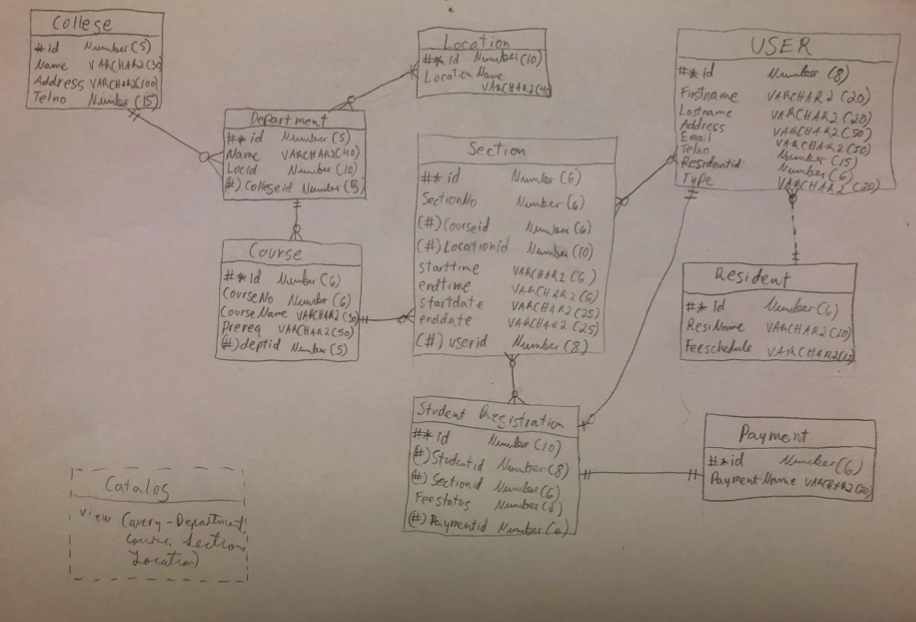 College
#id Number(5)
Name VARCHAR2(30
Address VARCHAR2(100)
Telno Number(15)
Location
#* id Number(10)
Location Name
VARCHAR2(40
USER
#* id Number (8)
Firstname VARCHAR2 (20)
Lastname VARCHAR2 (20)
Address VARCHAR2(50)
Email VARCHAR2(50)
Telno Number(15)
Residentid Number(6)
Type VARCHAR2(20)
Department
#* id Number(5)
Name VARCHAR2(40)
Locid Number(10)
(#) Collegeid Number(5)
Section
#* id Number (6)
SectionNo Number(6)
(#) Courseid Number(6)
(#) Locationid Number(10)
starttime VARCHAR2(6)
endtime VARCHAR2(6)
startdate VARCHAR2(25)
enddate VARCHAR2(25)
(#) userid Number(8)
Course
#* id Number(6)
CourseNo Number(6)
CourseName VARCHAR2(50)
Prereq VARCHAR2(50)
(#)deptid Number(5)
Resident
#* id Number(6)
ResiName VARCHAR2(10)
Feeschedule VARCHAR2(15)
Student Registration
#* id Number(10)
(#)Studentid Number(8)
(#) Sectionid Number(6)
Feestatus Number(1)
(#) Paymentid Number(6)
Payment
#* id Number(6)
Payment Name VARCHAR2(20)
Catalog
View (Query-Department
Course, Section,
Location)